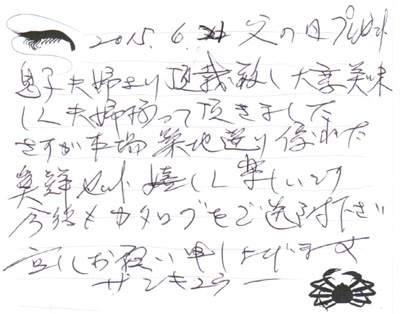 2015.6.21 父の日プレゼント
息子夫婦より頂戴致し大変美味
しく夫婦揃って頂きました
さすが本場築地選り優れた
海鮮セット嬉しく楽しいです
カタログをご送付下さい
宜しくお願い申し上げます
サンキュウー